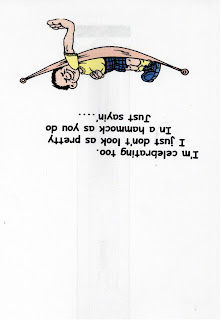 I'm celebrating too.
I just don't look as pretty
In a hammock as you do
Just sayin'....